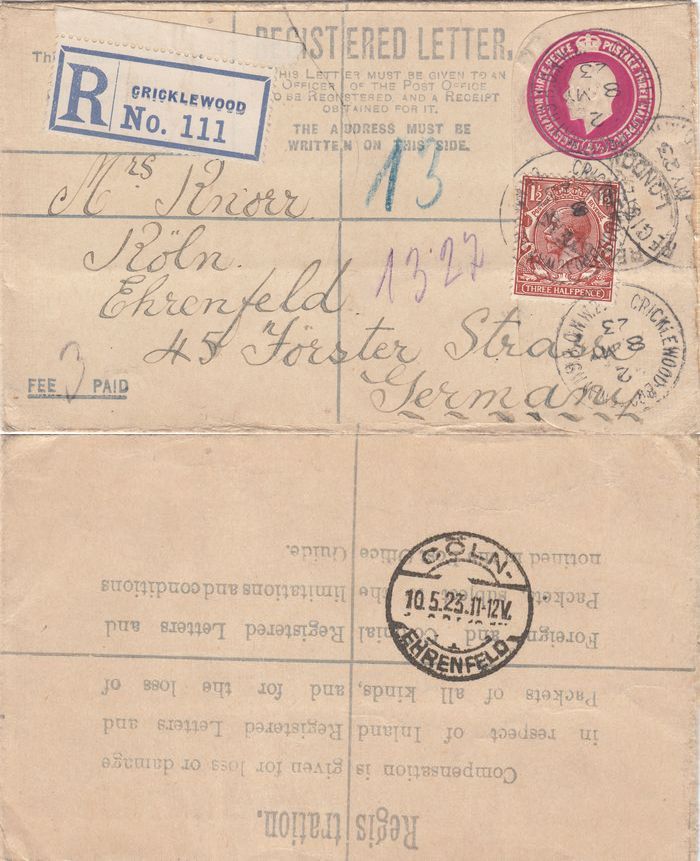 REGISTERED LETTER.
THIS LETTER MUST BE GIVEN TO AN
OFFICER OF THE POST OFFICE
TO BE REGISTERED, AND A RECEIPT
OBTAINED FOR IT.
THE ADDRESS MUST BE
WRITTEN ON THIS SIDE.
Thi
R
CRICKLEWOOD
No. 111
REGISTRATION THREE PENCE POSTAGE THREE HALFPENCE
2
8 MY
23
MY 23
LONDON
REGISTERED
13
Mrs Knorr
Köln.
Ehrenfeld
45 Förster Strasse
Germany
13 27
1½
THREE HALFPENCE
CRICKLEWOOD
N.W.2.
2
8 MY
23
FEE 3 PAID
CÖLN-
10.5.23.11-12V.
EHRENFELD
Registration.
Compensation is given for loss or damage
in respect of Inland Registered Letters and
Packets of all kinds, and for the loss of
Foreign and Colonial Registered Letters and
Packets subject to the limitations and conditions
notified in the Post Office Guide.